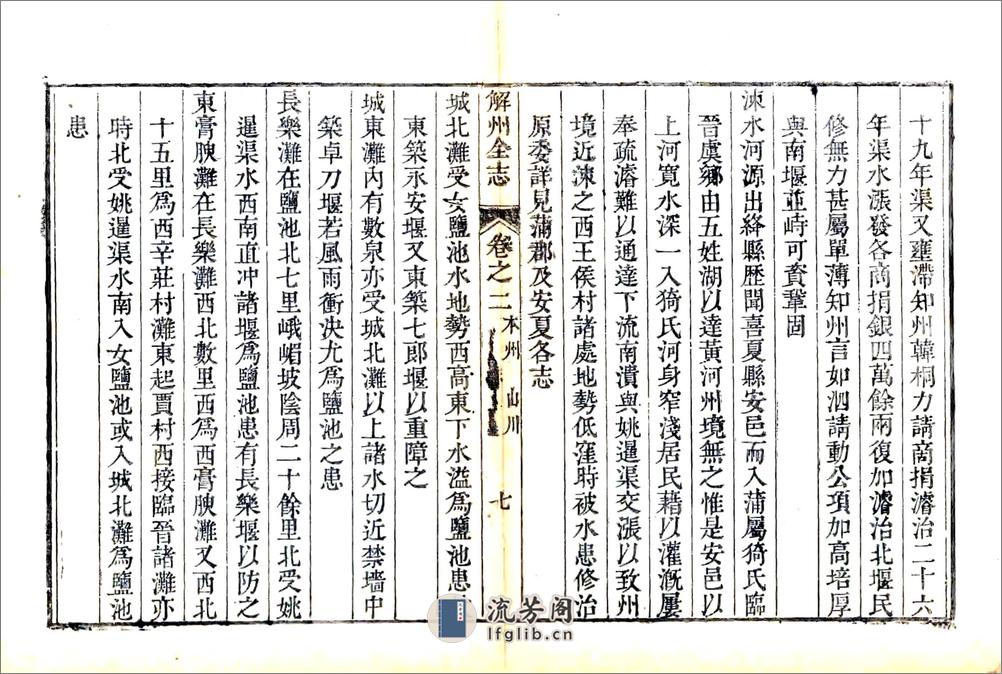 十九年渠又壅滯知州韓桐力請商捐濬治二十六
年渠水漲發各商捐銀四萬餘兩復加濬治北堰民
修無力甚屬單薄知州言如泗請動公項加高培厚
與南堰並峙可資鞏固
涑水河源出絳縣歷聞喜夏縣安邑而入蒲屬猗氏臨
晉虞鄉由五姓湖以達黃河州境無之惟是安邑以
上河寬水深一入猗氏河身窄淺居民藉以灌漑屢
奉疏濬難以通達下流南潰與姚暹渠交漲以致州
境近涑之西王侯村諸處地勢低窪時被水患修治
原委詳見蒲郡及安夏各志
解州全志 卷之二 本州 山川 七
城北灘受女鹽池水地勢西高東下水溢爲鹽池患
東築永安堰又東築七郎堰以重障之
城東灘內有數泉亦受城北灘以上諸水切近禁墻中
築卓刀堰若風雨衝決尤爲鹽池之患
長樂灘在鹽池北七里峨嵋坡陰周二十餘里北受姚
暹渠水西南直冲諸堰爲鹽池患有長樂堰以防之
東膏腴灘在長樂灘西北數里西爲西膏腴灘又西北
十五里爲西辛莊村灘東起賈村西接臨晉諸灘亦
時北受姚暹渠水南入女鹽池或入城北灘爲鹽池
患
流芳阁
lfglib.cn